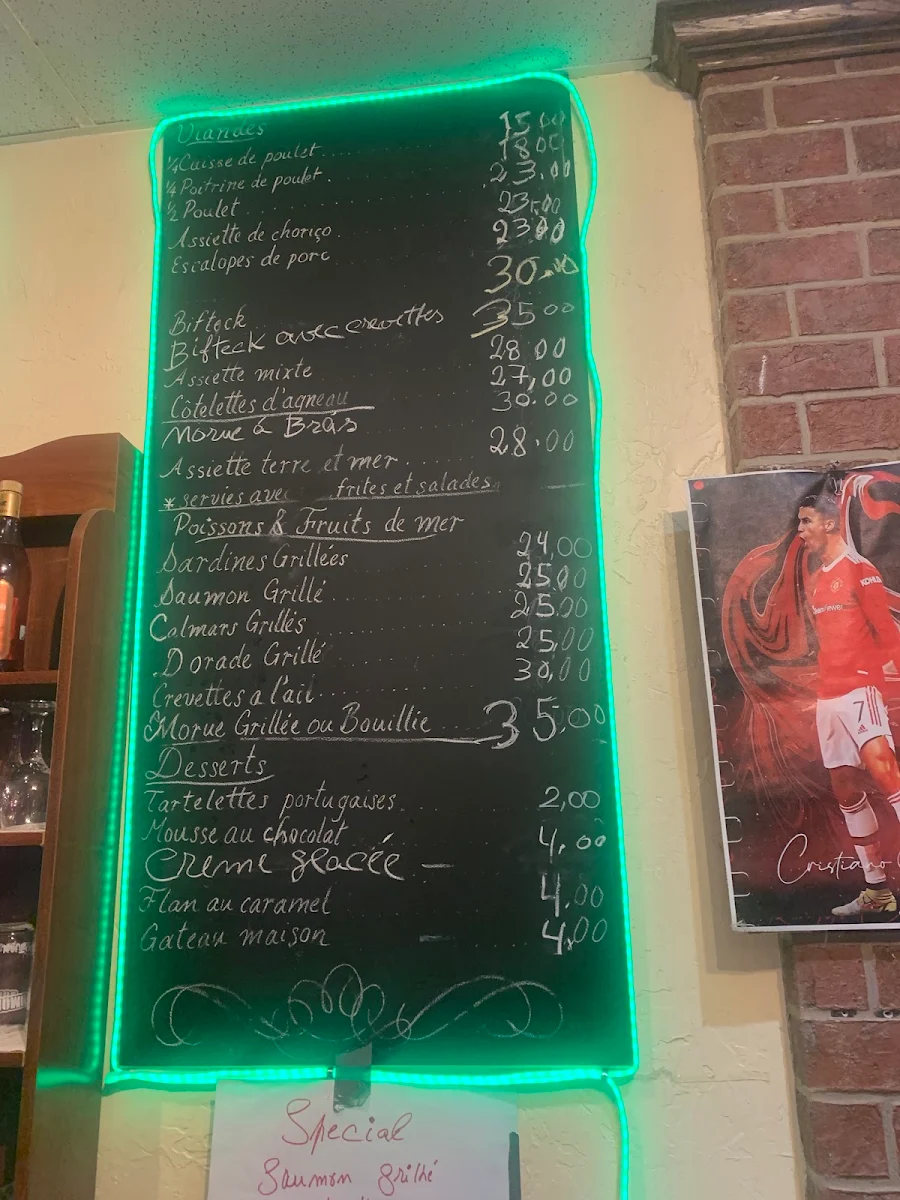 Viandes
1/4 Cuisse de poulet 15.00
1/4 Poitrine de poulet 18.00
1/2 Poulet 23.00
Assiette de choriço 23,00
Escalopes de porc 23.00
Bifteck 30.00
Bifteck avec crevettes 35.00
Assiette mixte 28.00
Côtelettes d'agneau 27,00
Morue à Brás 30.00
Assiette terre et mer 28.00
* servies avec frites et salades
Poissons & Fruits de mer
Sardines Grillées 24,00
Saumon Grillé 25,00
Calmars Grillés 25,00
Dorade Grillé 25,00
Crevettes a l'ail 30,00
Morue Grillée ou Bouillie 35,00
Desserts
Tartelettes portugaises 2,00
Mousse au chocolat 4,00
Creme glacée
Flan au caramel 4.00
Gateau maison 4,00
Special
Saumon grillé
KOHLER
TeamViewer
7
Cristiano